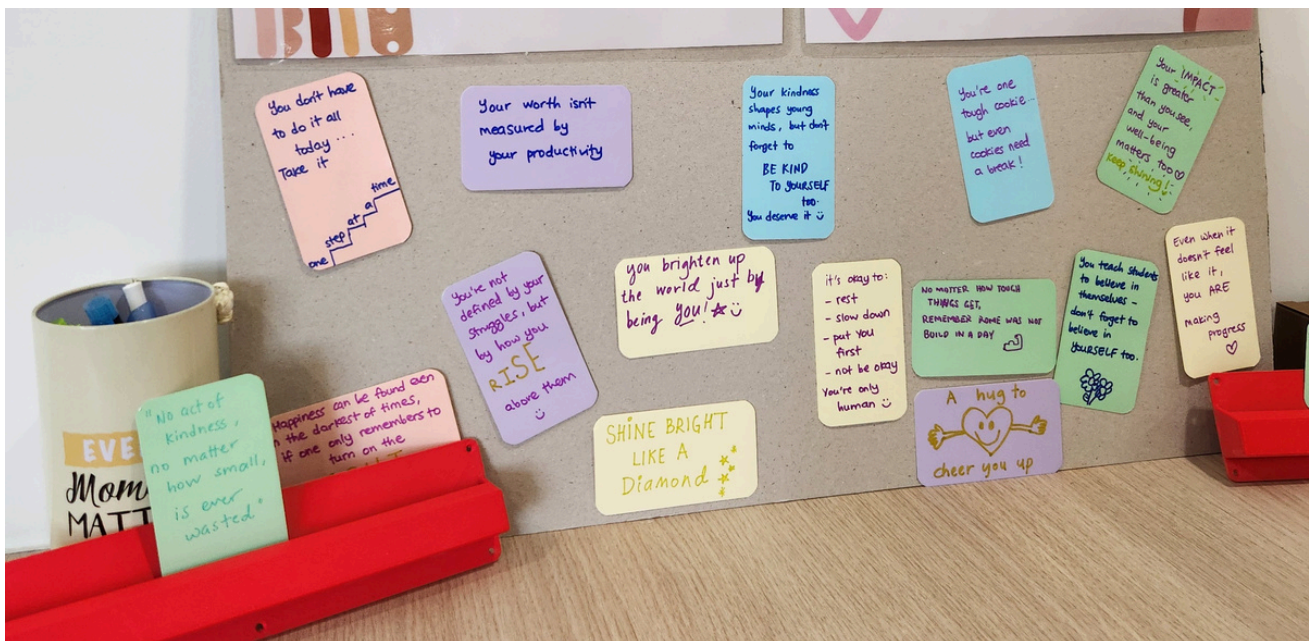 You don't have
to do it all
today....
Take it
one step at a time
Your worth isn't
measured by
your productivity
Your kindness
shapes young
minds, but don't
forget to
BE KIND
TO YOURSELF
too.
You deserve it
You're one
tough cookie...
but even
cookies need
a break!
Your IMPACT
is greater
than you see,
and your
well-being
matters too
keep shining!
You're not
defined by your
struggles, but
by how you
RISE
above them
you brighten up
the world just by
being you!
it's okay to:
- rest
- slow down
- put YOU
first
- not be okay
You're only
human
NO MATTER HOW TOUGH
THINGS GET,
REMEMBER ROME WAS NOT
BUILD IN A DAY
You teach students
to believe in
themselves -
don't forget to
believe in
YOURSELF too.
Even when it
doesn't feel
like it,
you ARE
making
progress
"No act of
kindness,
no matter
how small,
is ever
wasted."
Happiness can be found even
in the darkest of times,
if one only remembers to
turn on the
SHINE BRIGHT
LIKE A
Diamond
A hug to
cheer you up
EVE
Mom
MATT